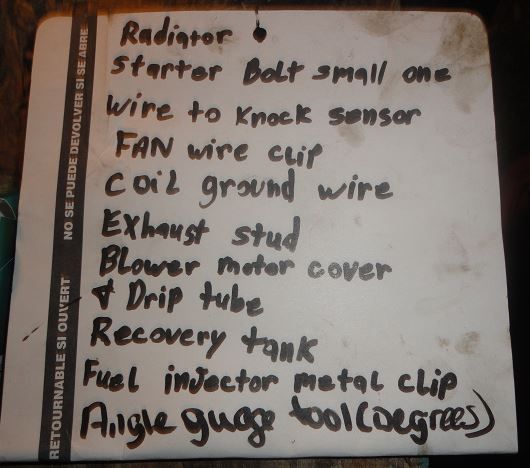 Radiator
Starter Bolt small one
wire to Knock sensor
FAN wire clip
coil ground wire
Exhaust stud
Blower motor cover
& Drip tube
Recovery tank
Fuel injector metal clip
Angle guage tool (Degrees)
NO SE PUEDE DEVOLVER SI SE ABRE
RETOURNABLE SI OUVERT